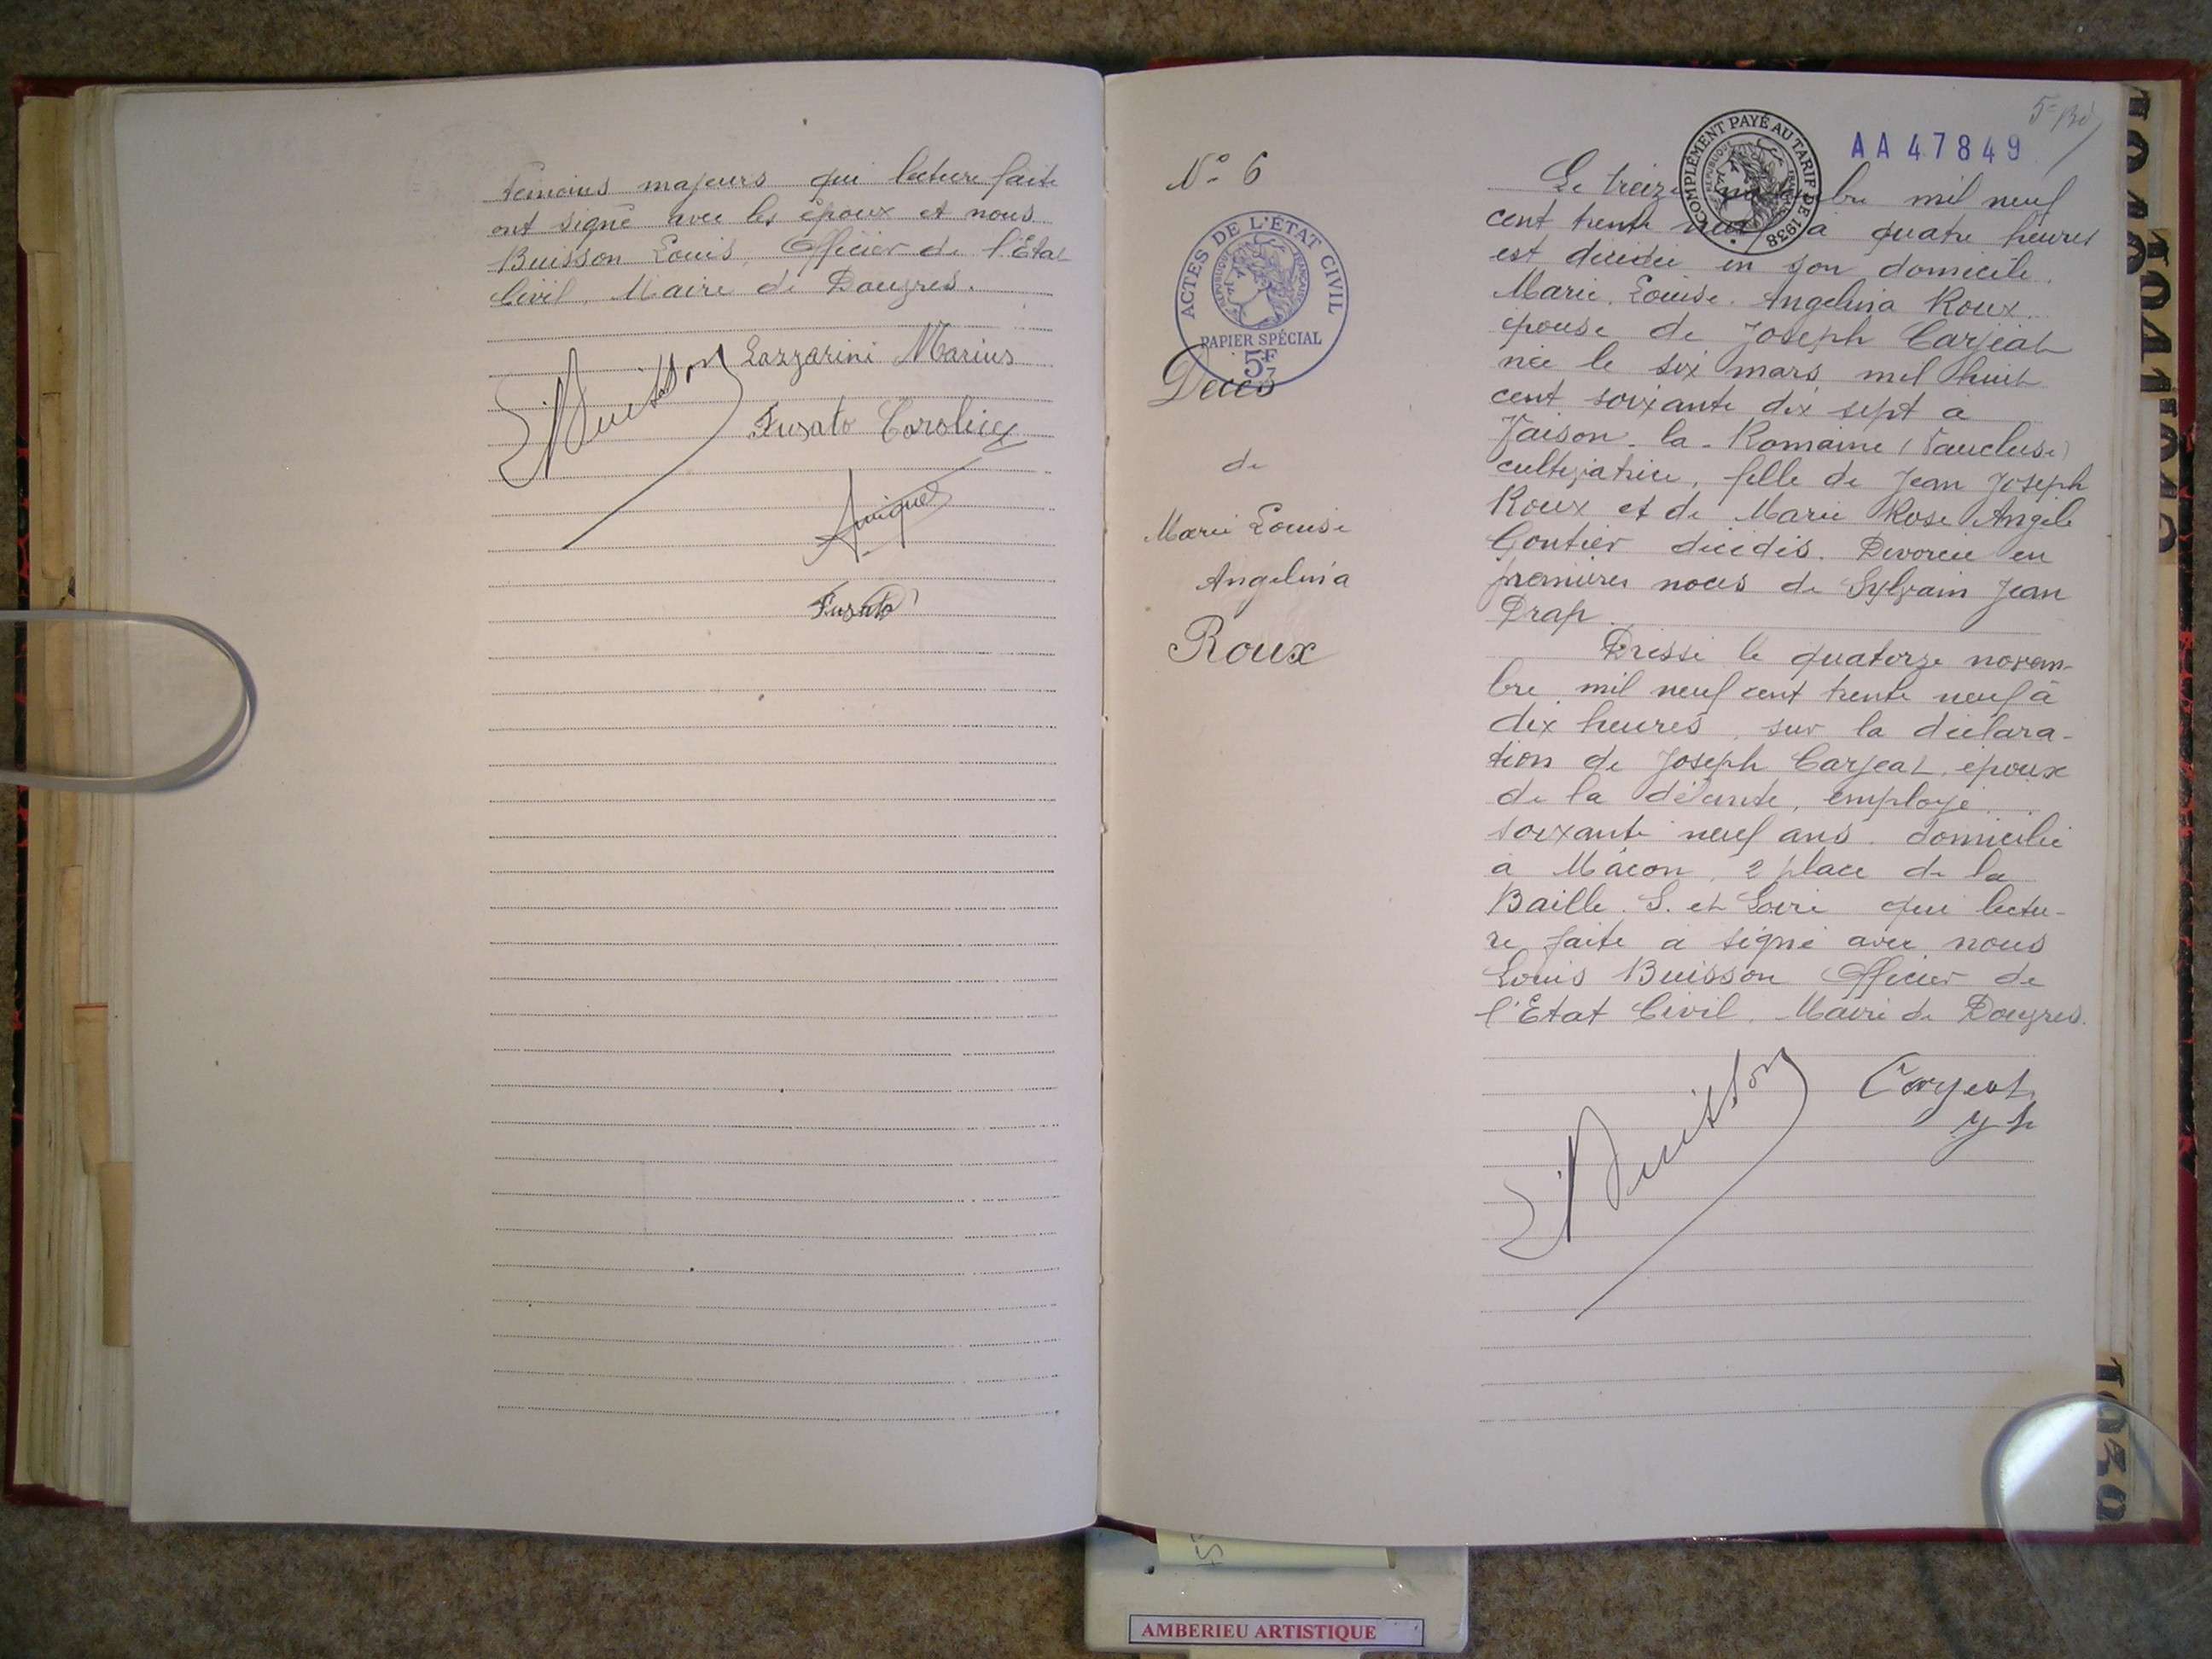 témoins majeurs qui lecture faite
ont signé avec les époux et nous
Buisson Louis, Officier de l'Etat
Civil, Maire de Douvres.
Lazzarini Marius
L Buisson
Fusato Caroline
Fusato
5F
AA 47849
COMPLÉMENT PAYÉ AU TARIF DE 1938
N° 6
ACTES DE L'ÉTAT CIVIL
REPUBLIQUE FRANÇAISE
PAPIER SPÉCIAL
5F
Décès
de
Marie Louise
Angelina
Roux
Le treize bre mil neuf
cent trente neuf à quatre heures
est décédée en son domicile
Marie, Louise, Angelina Roux
épouse de Joseph Carjeat
née le six mars mil huit
cent soixante dix sept à
Vaison-la-Romaine (Vaucluse)
cultivatrice, fille de Jean Joseph
Roux et de Marie Rose Angèle
Gontier décédés. Divorcée en
premières noces de Sylvain Jean
Drap.
Dressé le quatorze novem-
bre mil neuf cent trente neuf à
dix heures, sur la déclara-
tion de Joseph Carjeat, époux
de la défunte, employé
soixante neuf ans, domicilié
à Mâcon, 2 place de la
Baille, S. et Loire qui lectu-
re faite a signé avec nous
Louis Buisson Officier de
l'Etat Civil, Maire de Douvres.
L Buisson
Carjeat
1939
AMBERIEU ARTISTIQUE